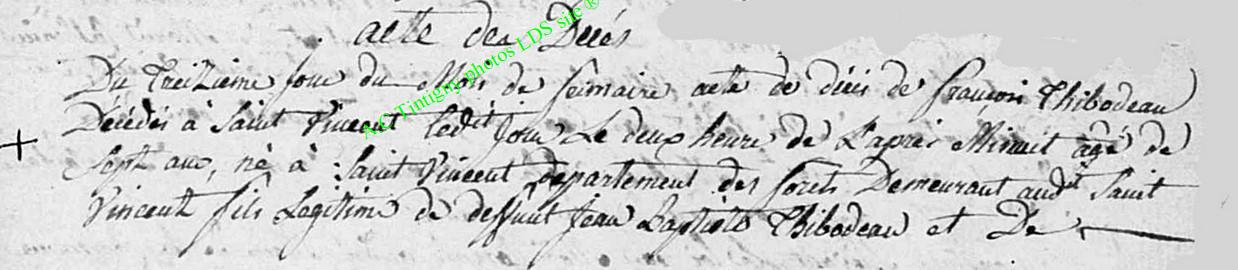 acte des Décés
Du treizieme jour du Mois de frimaire acte de décés de francois Thibodeau
Décédés à Saint Vincent ledit jour Le deux heure de L'aprés Minuit âgé de
Sept ans, né à Saint Vincent departement des forets Demeurant audit Saint
Vincent fils Legitime de deffunt Jean Baptiste Thibodeau et De
AC Tintigny photos LDS site ®